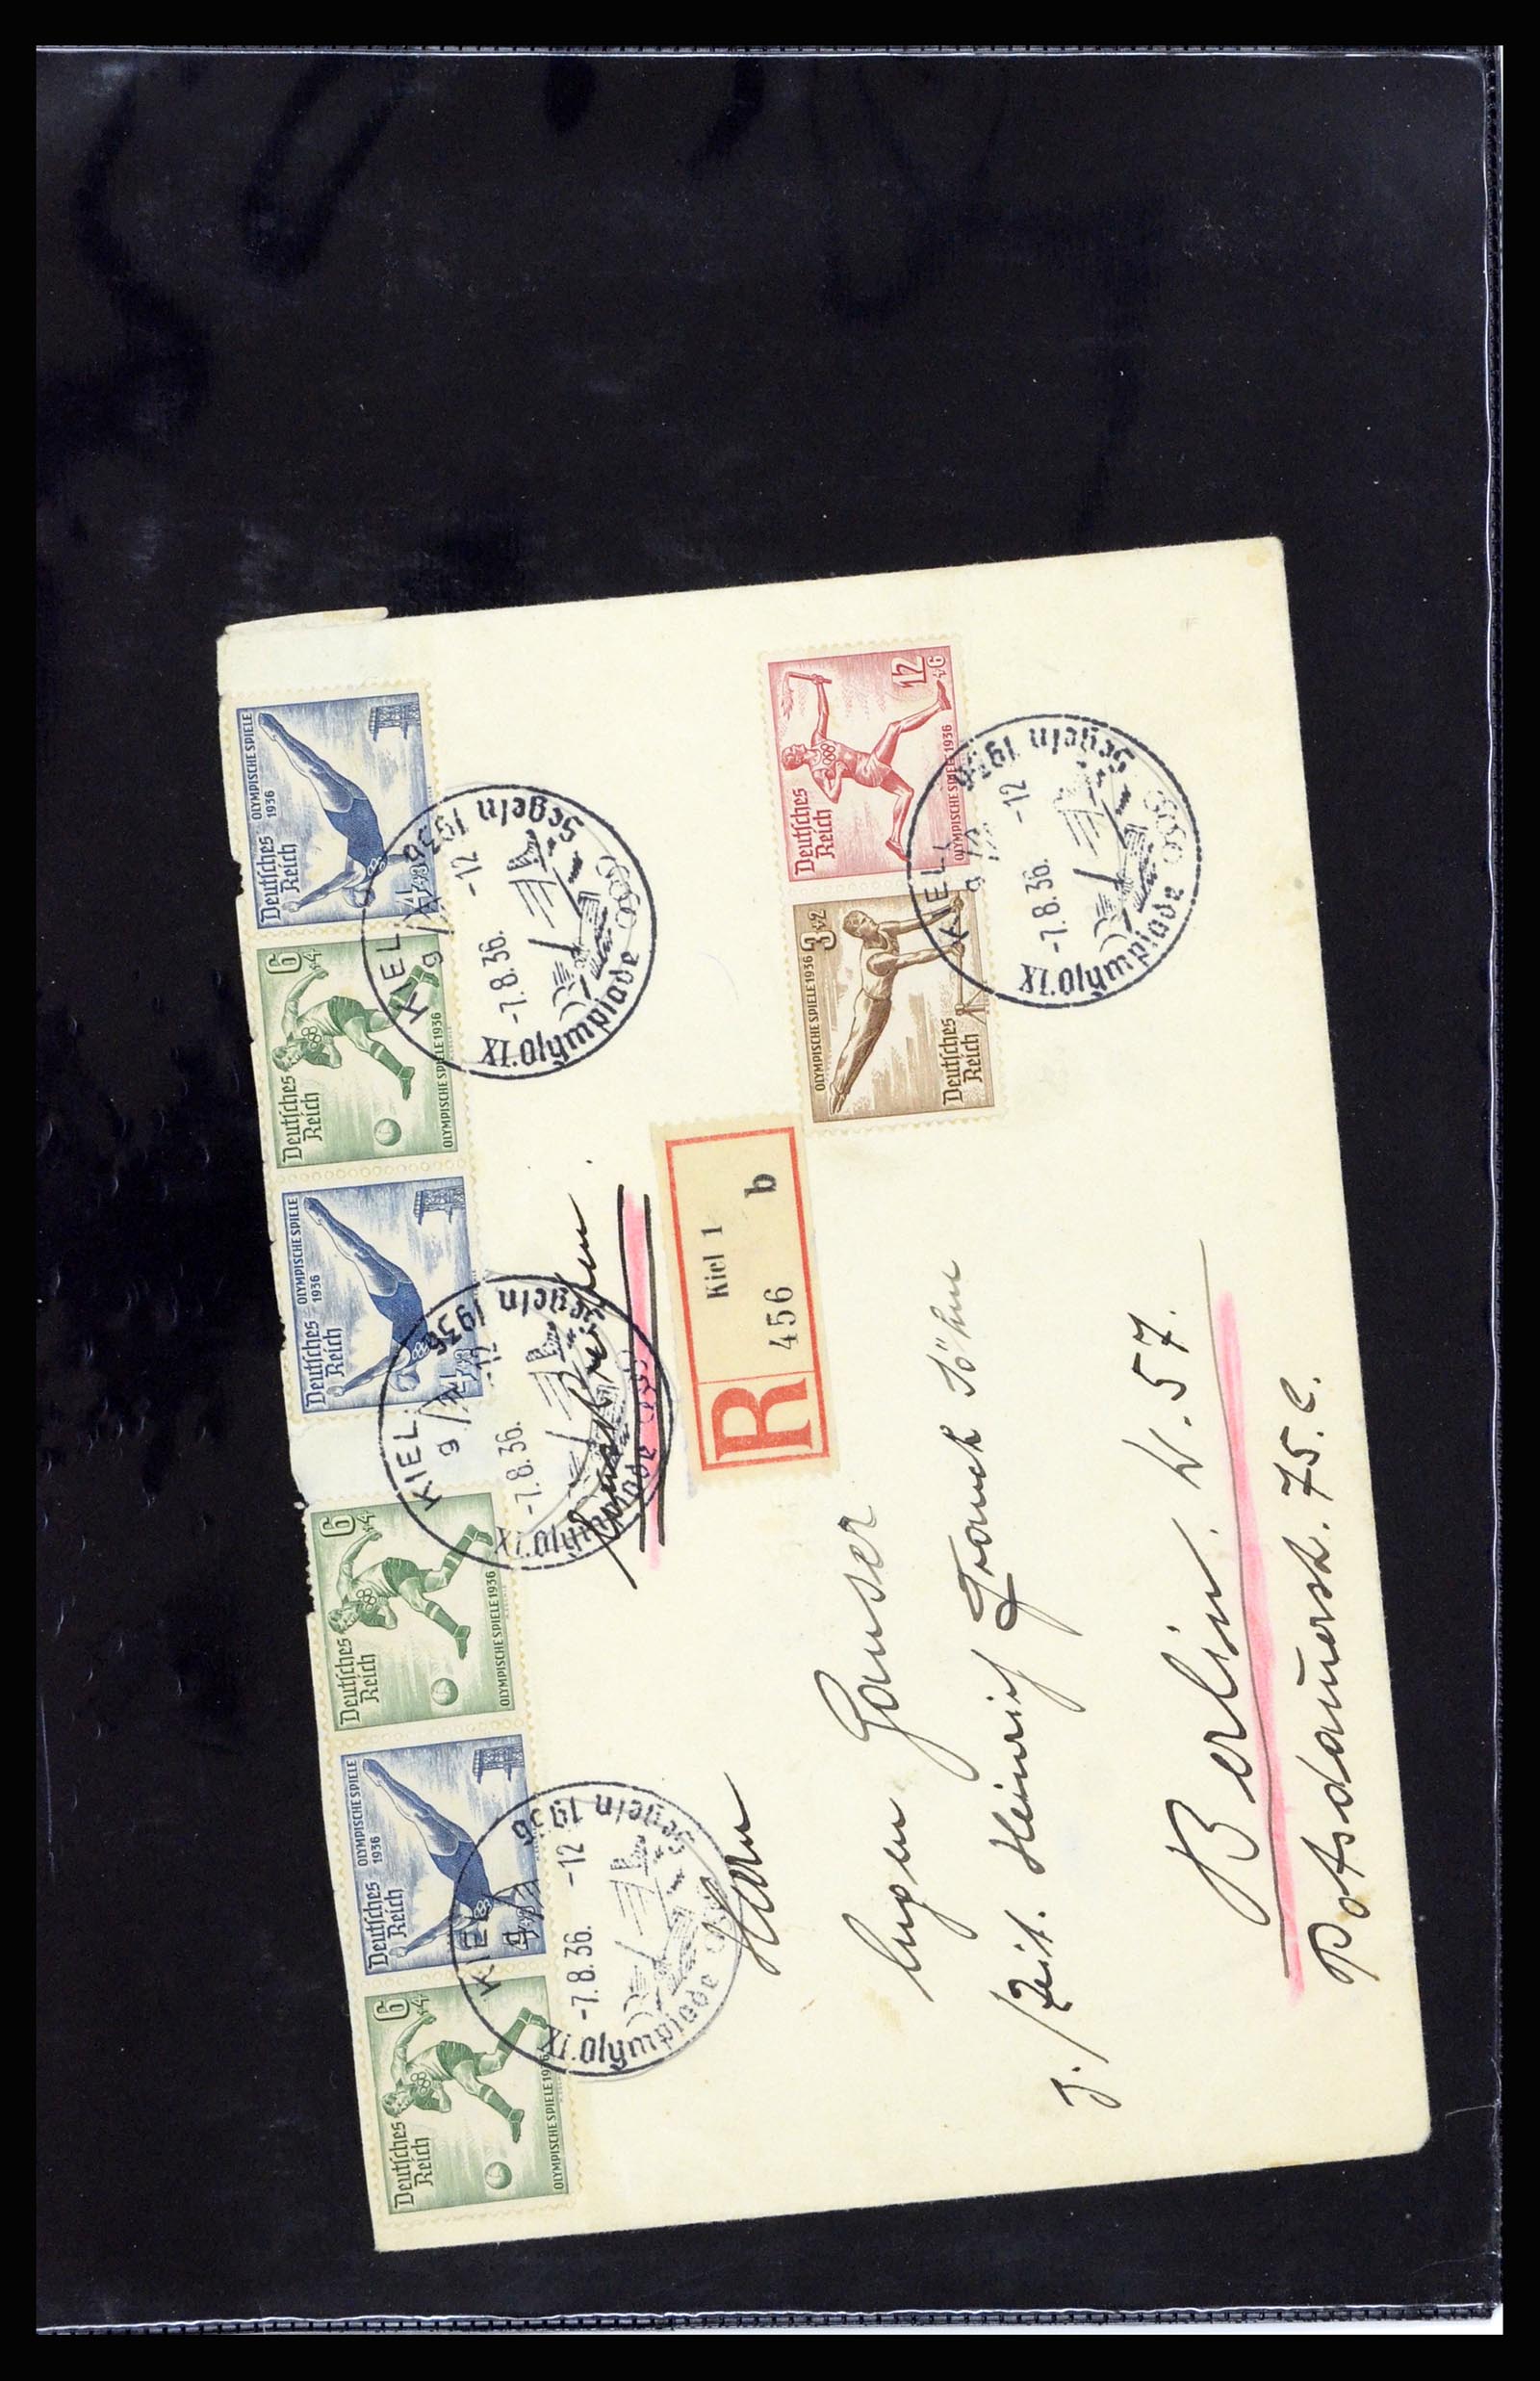 Deutsches
Reich
6+4
OLYMPISCHE SPIELE 1936
Deutsches
Reich
OLYMPISCHE SPIELE
1936
4+3
Deutsches
Reich
6+4
OLYMPISCHE SPIELE 1936
Deutsches
Reich
OLYMPISCHE SPIELE
1936
4+3
Deutsches
Reich
6+4
OLYMPISCHE SPIELE 1936
Deutsches
Reich
OLYMPISCHE SPIELE
1936
4+3
KIEL
g
-7.8.36. -12
XI.Olympiade Segeln 1936
KIEL
g
-7.8.36. -12
XI.Olympiade Segeln 1936
KIEL
g
-7.8.36. -12
XI.Olympiade Segeln 1936
R
Kiel 1
456 b
OLYMPISCHE SPIELE 1936
3+2
Deutsches
Reich
Deutsches
Reich
12+6
OLYMPISCHE SPIELE 1936
KIEL
g
-7.8.36. -12
XI.Olympiade Segeln 1936
Herrn
Eugen Ganser
Heinrich Franck Söhne
Berlin. W. 57.
Potsdamerstr. 75.c.